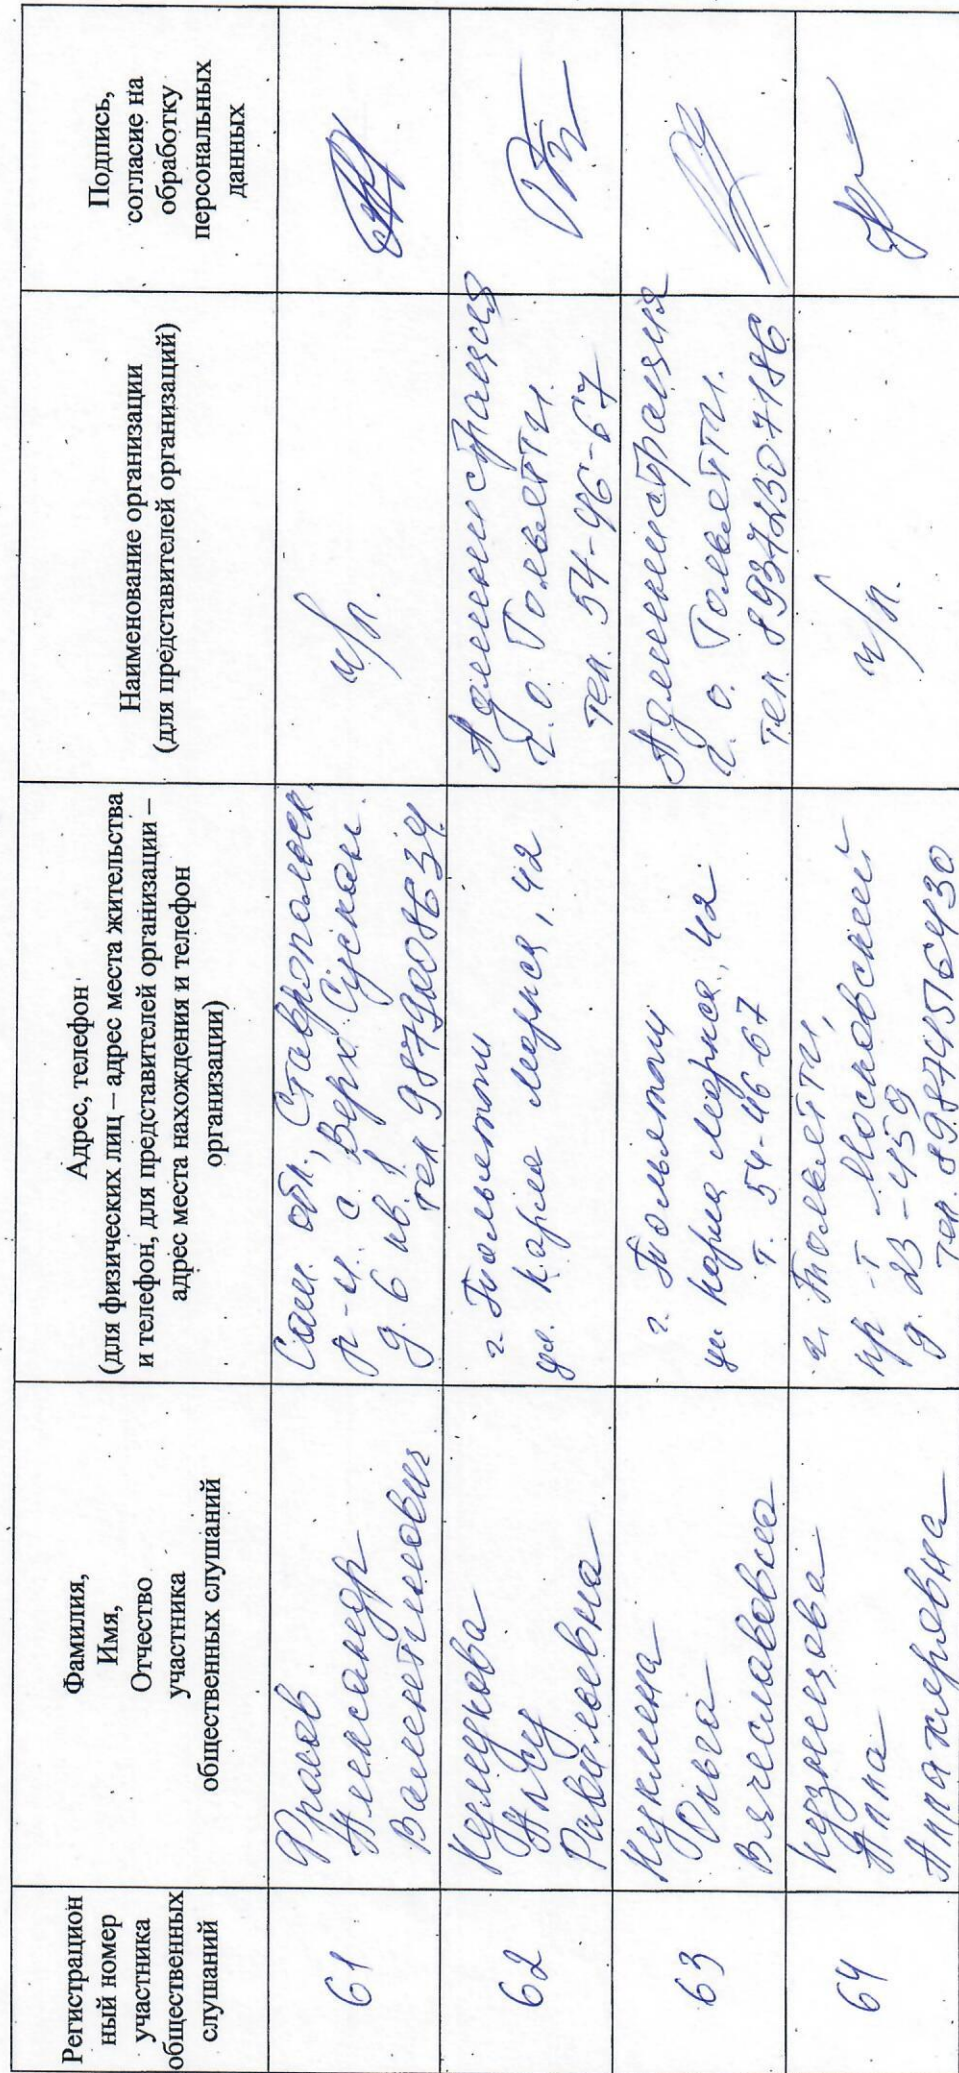 Регистрацион
ный номер
участника
общественных
слушаний
Фамилия,
Имя,
Отчество
участника
общественных слушаний
Адрес, телефон
(для физических лиц – адрес места жительства
и телефон, для представителей организации –
адрес места нахождения и телефон
организации)
Наименование организации
(для представителей организаций)
Подпись,
согласие на
обработку
персональных
данных
61
Фролов
Александр
Валентинович
Сам. обл., Ставропольск.
р-н. с. Верх. Сускан.
д. 6 кв. 1
тел
ч/л.
62
Равильевна
г. Тольятти
ул. Карла Маркса, 42
Администрация
г.о. Тольятти.
тел. 54-46-67
63
Куклина
Ольга
Вячеславовна
г. Тольятти
ул Карла Маркса, 42
т. 54-46-67
Администрация
г.о. Тольятти.
тел. 89372307186
64
Кузнецова
Анна
г. Тольятти,
пр-т Московский
д. 23-459
тел. 89874576430
ч/л.